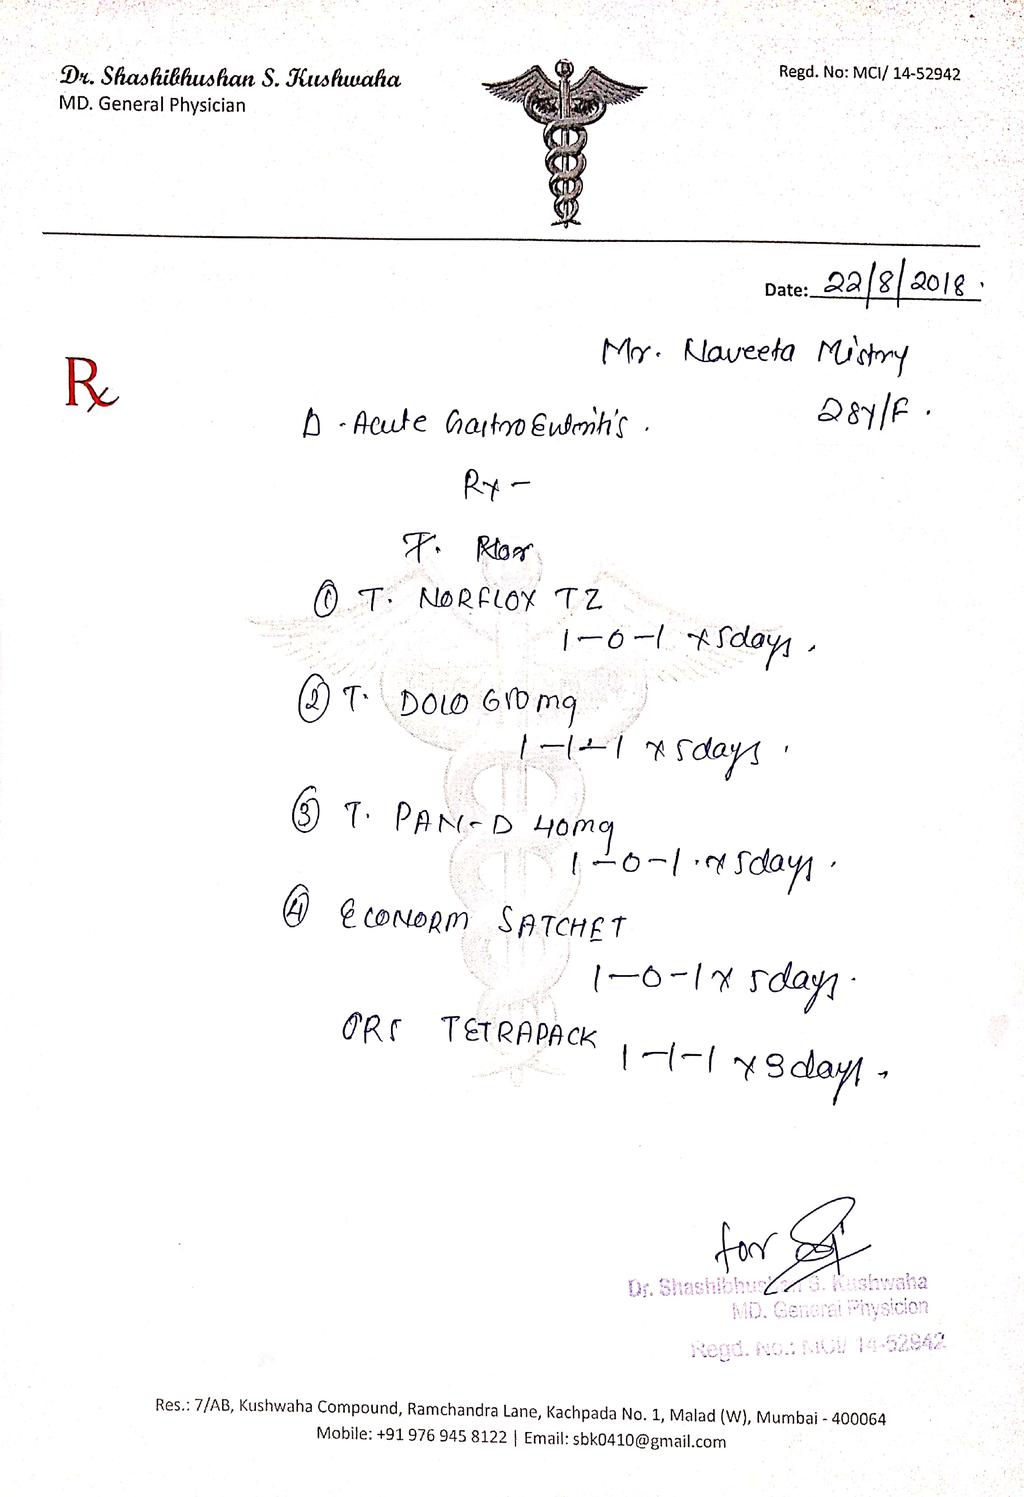 Dr. Shashibhushan S. Kushwaha
MD. General Physician
Regd. No: MCI/ 14-52942
Date: 22/8/2018.
Mr. Naveeta Mistry
28Y/F.
Rx
D - Acute Gastro Entritis.
Rx -
T.
① T. NORFLOX TZ
1-0-1 x 5days.
② T. DOLO 650mg
1-1-1 x 5days.
③ T. PAN-D 40mg
1-0-1 x 5days.
④ ECONORM SATCHET
1-0-1 x 5days.
ORS TETRAPACK
1-1-1 x 3days.
for
Dr. Shashibhushan S. Kushwaha
MD. General Physicion
Regd. No.: MCI/ 14-52942
Res.: 7/AB, Kushwaha Compound, Ramchandra Lane, Kachpada No. 1, Malad (W), Mumbai - 400064
Mobile: +91 976 945 8122 | Email: sbk0410@gmail.com